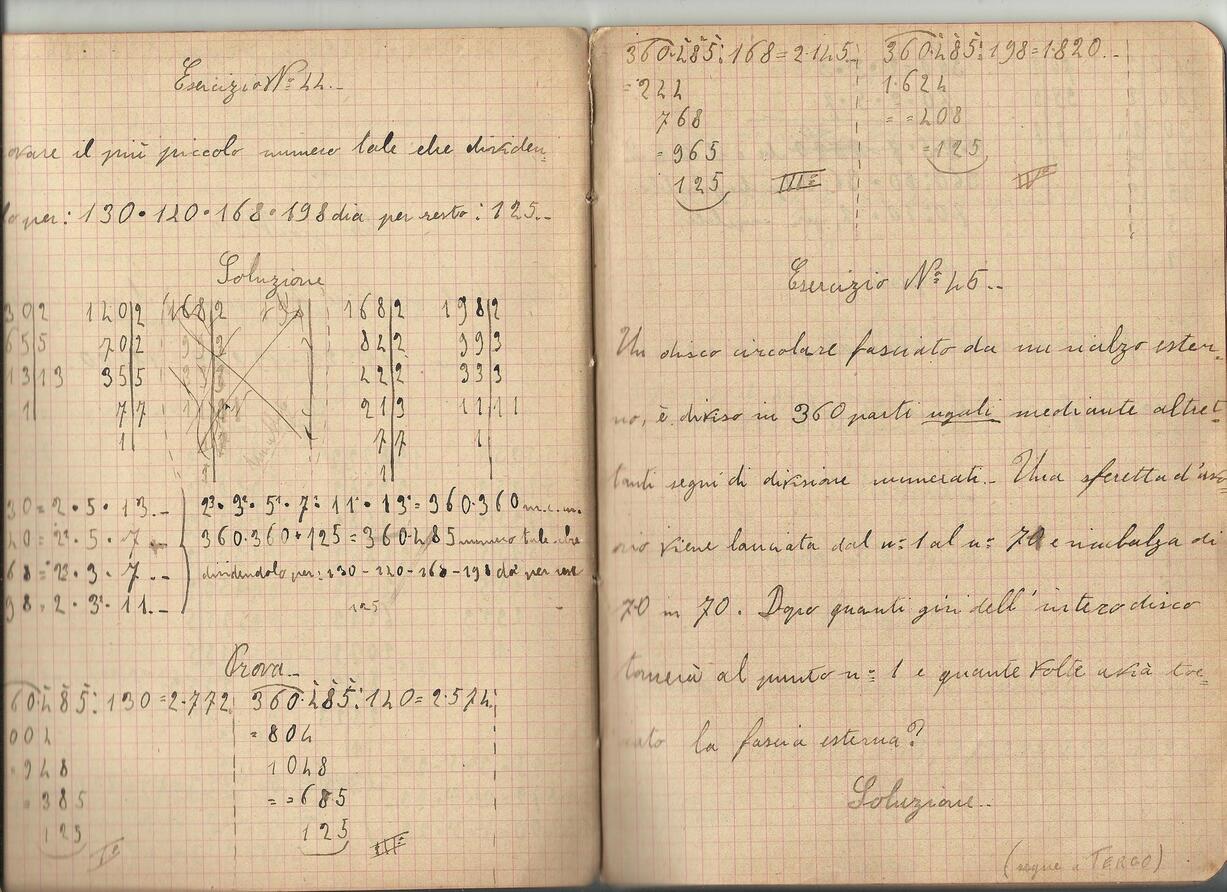 Esercizio Nº 44.-
ovare il più piccolo numero tale che dividen-
lo per: 130 • 140 • 168 • 198 dia per resto: 125.-
Soluzione
30|2 140|2 168|2 168|2 198|2
65|5 70|2 84|2 99|3
13|13 35|5 42|2 33|3
1| 7|7 21|3 11|11
1| 7|7 1|
1|
30 = 2 • 5 • 13.-
2³ • 3² • 5¹ • 7¹ • 11¹ • 13¹ = 360.360 m.c.m.
40 = 2² • 5 • 7
360.360 + 125 = 360.485 numero tale che
68 = 2³ • 3 • 7.--
dividendolo per: 130 - 140 - 168 - 198 dà per rest
98 = 2 • 3² • 11.--
125
Prova-
60.485 : 130 = 2.772 360.485 : 140 = 2.574
004 = 804
948 1048
385 = = 685
125 Iª 125 IIª
360.485 : 168 = 2.145. 360.485 : 198 = 1.820.-
= 244 1.624
768 = = 408
= 965 = 125
125 IIIª IVª
Esercizio Nº 45.-
Un disco circolare fasciato da un rialzo ester-
no, è diviso in 360 parti uguali mediante altret-
tanti segni di divisione numerati.- Una sferetta d'avo
rio viene lanciata dal nº 1 al nº 70 e rimbalza di
70 in 70. Dopo quanti giri dell'intero disco
tornerà al punto nº 1 e quante volte avrà toc-
cato la fascia esterna?
Soluzione..
(segue a TERGO)